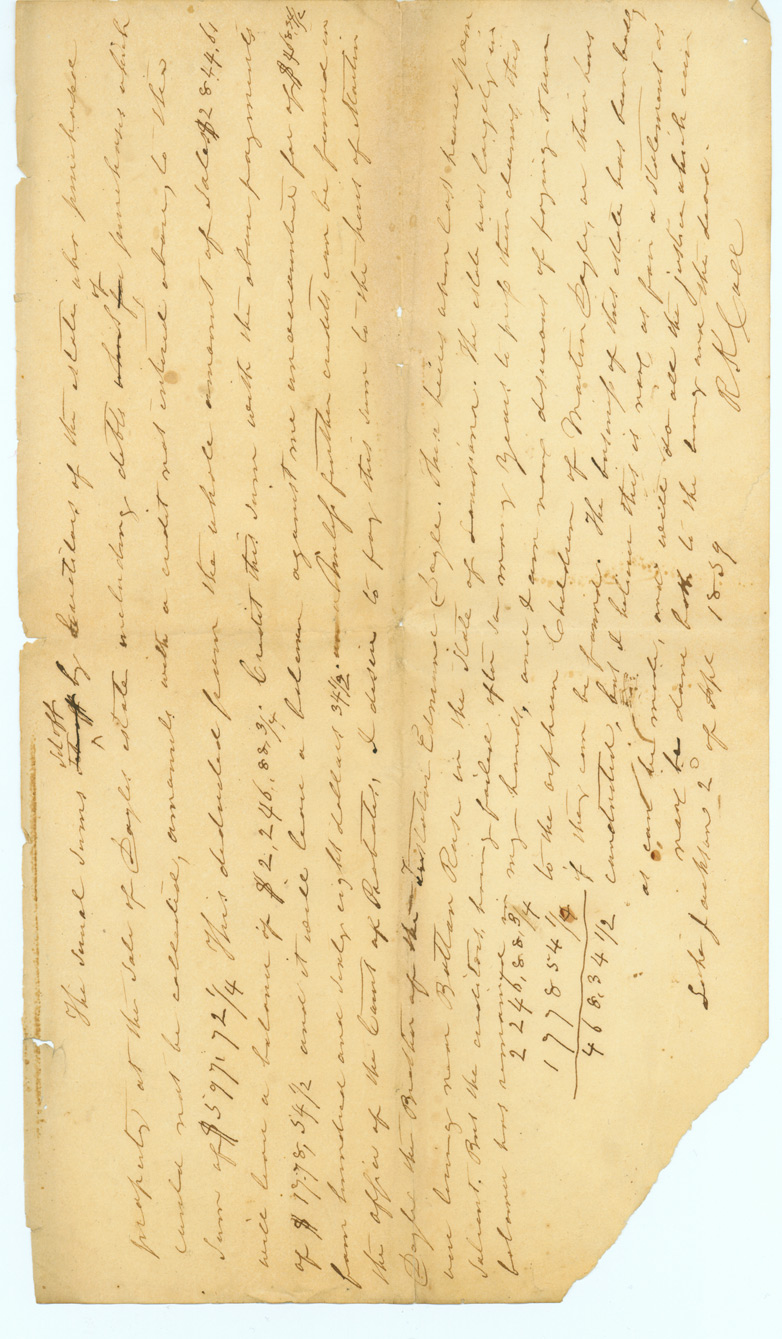 The several sums set off by Creditors of the estate who purchased
property at the sale of Doyles estate including debts of purchases which
could not be collected, amounts with a credit not entered above, to the
sum of $597,72 1/4 This deducted from the whole amount of sale $2844,61
will leave a balance of $2,246,,88 3/4. Credit this sum with the above payments
of $1778,54 1/2 and it will leave a balance against me unaccounted for of $468 34 1/2
four hundred and sixty eight dollars 34 1/2. Unless further credits can be found in
the office of the Court of Probates, I desire to pay this sum to the heirs of Martin
Doyle the Brother of the Intestate Edmund Doyle. These heirs when last heard from
were living near Batton Rouge in the State of Louisiana. The estate was largely in
solvent. But the creditors having failed after so many years to press their claims, this
balance has remained in my hands, and I am now desirous of paying it over
2 246,88 3/4 to the orphan Children of Martin Doyle, or their heirs
1 778 54 1/4 if they can be found. The business of this estate has been badly
468,34 1/2 conducted, but I believe this is now as fair a statement as
as can be made, and will do all the justice which can
now be done both to the living and the dead.
Lake Jackson 2d of Sept 1859
R K Call